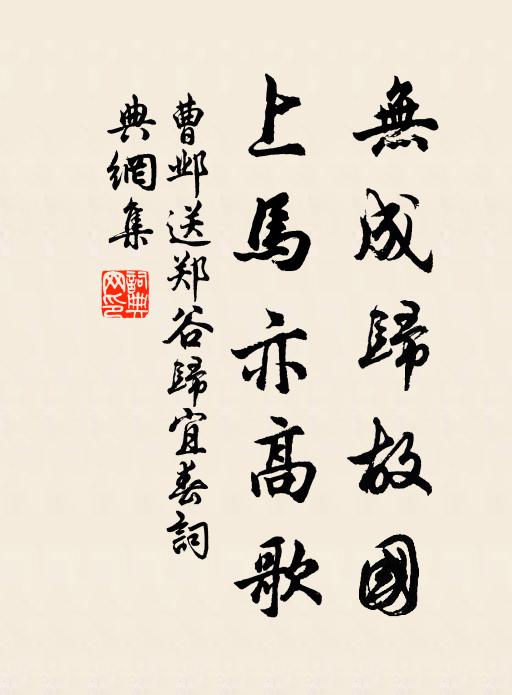 無成歸故國
上馬亦高歌
曹邺送郑谷歸宜春詞
典網集
詞典網印